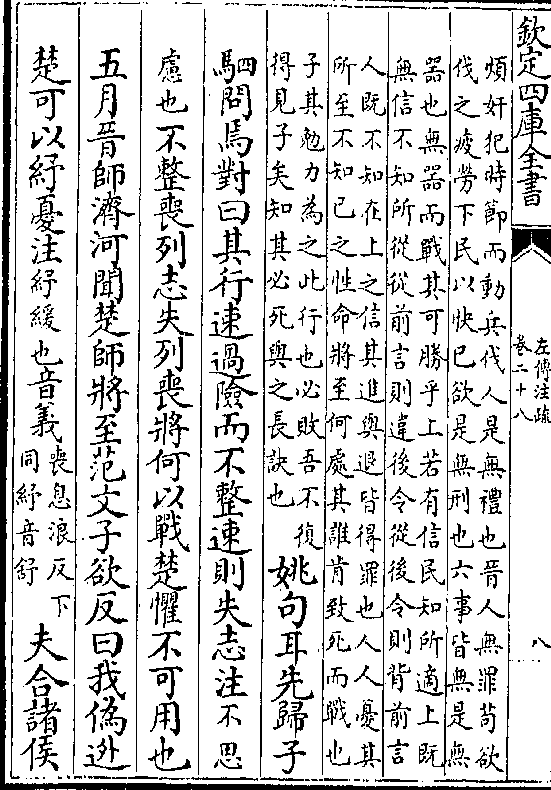 欽定四庫全書
左傳注疏
卷二十八
八
煩奸犯時節而動兵伐人是無禮也晉人無罪苟欲
伐之疲勞下民以快已欲是無刑也六事皆無是無
器也無器而戰其可勝乎上若有信民知所適上既
無信不知所從從前言則違後令從後令則背前言
人既不知在上之信其進與退皆得罪也人人憂其
所至不知已之性命將至何處其誰肯致死而戰也
子其勉力為之此行也必敗吾不復
得見子矣知其必死與之長訣也
姚句耳先歸子
駟問焉對曰其行速過險而不整速則失志注不思
慮也不整喪列志失列喪將何以戰楚懼不可用也
五月晉師濟河聞楚師將至范文子欲反曰我偽逃
楚可以紓憂注紓緩也音義
喪息浪反下
同紓音舒
夫合諸侯